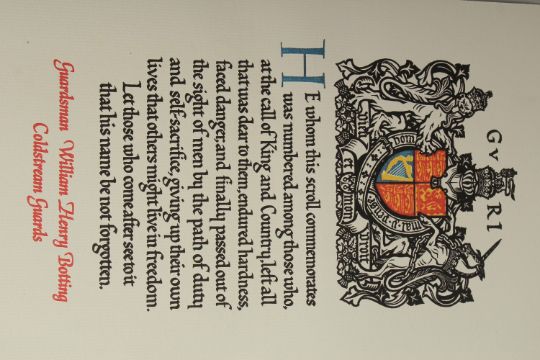 GV RI
Dieu et mon droit
HE whom this scroll commemorates
was numbered among those who,
at the call of King and Country, left all
that was dear to them, endured hardness,
faced danger, and finally passed out of
the sight of men by the path of duty
and self-sacrifice, giving up their own
lives that others might live in freedom.
Let those who come after see to it
that his name be not forgotten.
Guardsman William Henry Botting
Coldstream Guards